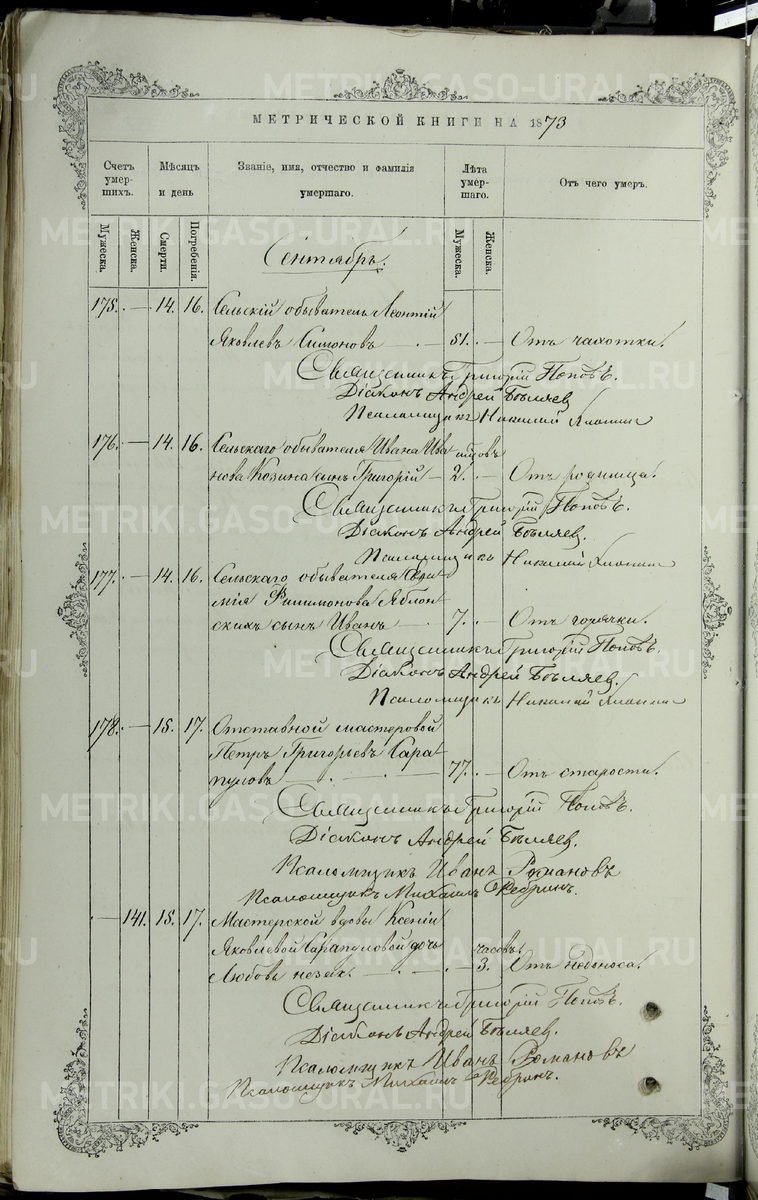 METRIKI.GASO-URAL.RU
МЕТРИЧЕСКОЙ КНИГИ НА 1873
Счетъ умер-шихъ.
Мѣсяцъ и день
Званіе, имя, отчество и фамилія умершаго.
Лѣта умер-шаго.
Отъ чего умеръ.
Мужеска.
Женска.
Смерти.
Погребенія.
Мужеска.
Женска.
Сентябрь.
175. — 14. 16. Сельскій обыватель Леонтій
Яковлевъ Симоновъ — 51. — Отъ чахотки.
Священникъ Григорій Поповъ.
Діаконъ Андрей Бѣляев
Псаломщикъ Николай
176. — 14. 16. Сельскаго обывателя Ивана Ива
нова Козина сынъ Григорій — 2. — Отъ родимца.
Священникъ Григорій Поповъ.
Діаконъ Андрей Бѣляев.
Псаломщикъ Николай
177. — 14. 16. Сельскаго обывателя
Филимонова Яблон
скихъ сынъ Иванъ — 7. — Отъ горячки.
Священникъ Григорій Поповъ.
Діаконъ Андрей Бѣляев
Псаломщикъ Николай
178. — 15. 17. Отставной мастеровой
Петръ Григорьевъ Сара
пуловъ — 77. — Отъ старости.
Священникъ Григорій Поповъ.
Діаконъ Андрей Бѣляев.
Псаломщикъ Иванъ Романовъ
Псаломщикъ Михаилъ Ребринъ.
— 141. 15. 17. Мастерской вдовы Ксеніи
Яковлевой Сарапуловой дочь часовъ.
Любовь незак. — 3. Отъ недоноса.
Священникъ Григорій Поповъ.
Діаконъ Андрей Бѣляев.
Псаломщикъ Иванъ Романовъ
Псаломщикъ Михаилъ Ребринъ.